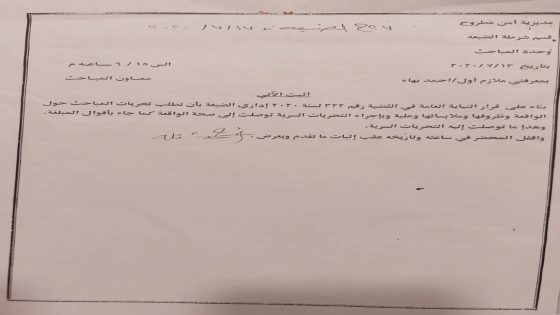 مديرية أمن مطروح
قسم شرطة الضبعه
وحدة المباحث
بتاريخ ٢٠٢٠/٧/١٣ الس ٦/١٥ ساعه م
بمعرفتي ملازم أول/احمد بهاء معاون المباحث
أثبت الآتي
بناء على قرار النيابة العامة في القضية رقم ٣٢٢ لسنة ٢٠٢٠ إداري الضبعة بأن تطلب تحريات المباحث حول
الواقعة وظروفها وملابساتها وعليه وبإجراء التحريات السرية توصلت إلى صحة الواقعة كما جاء بأقوال المبلغة.
وهذا ما توصلت إليه التحريات السرية.
واقفل المحضر في ساعته وتاريخه عقب إثبات ما تقدم ويعرض